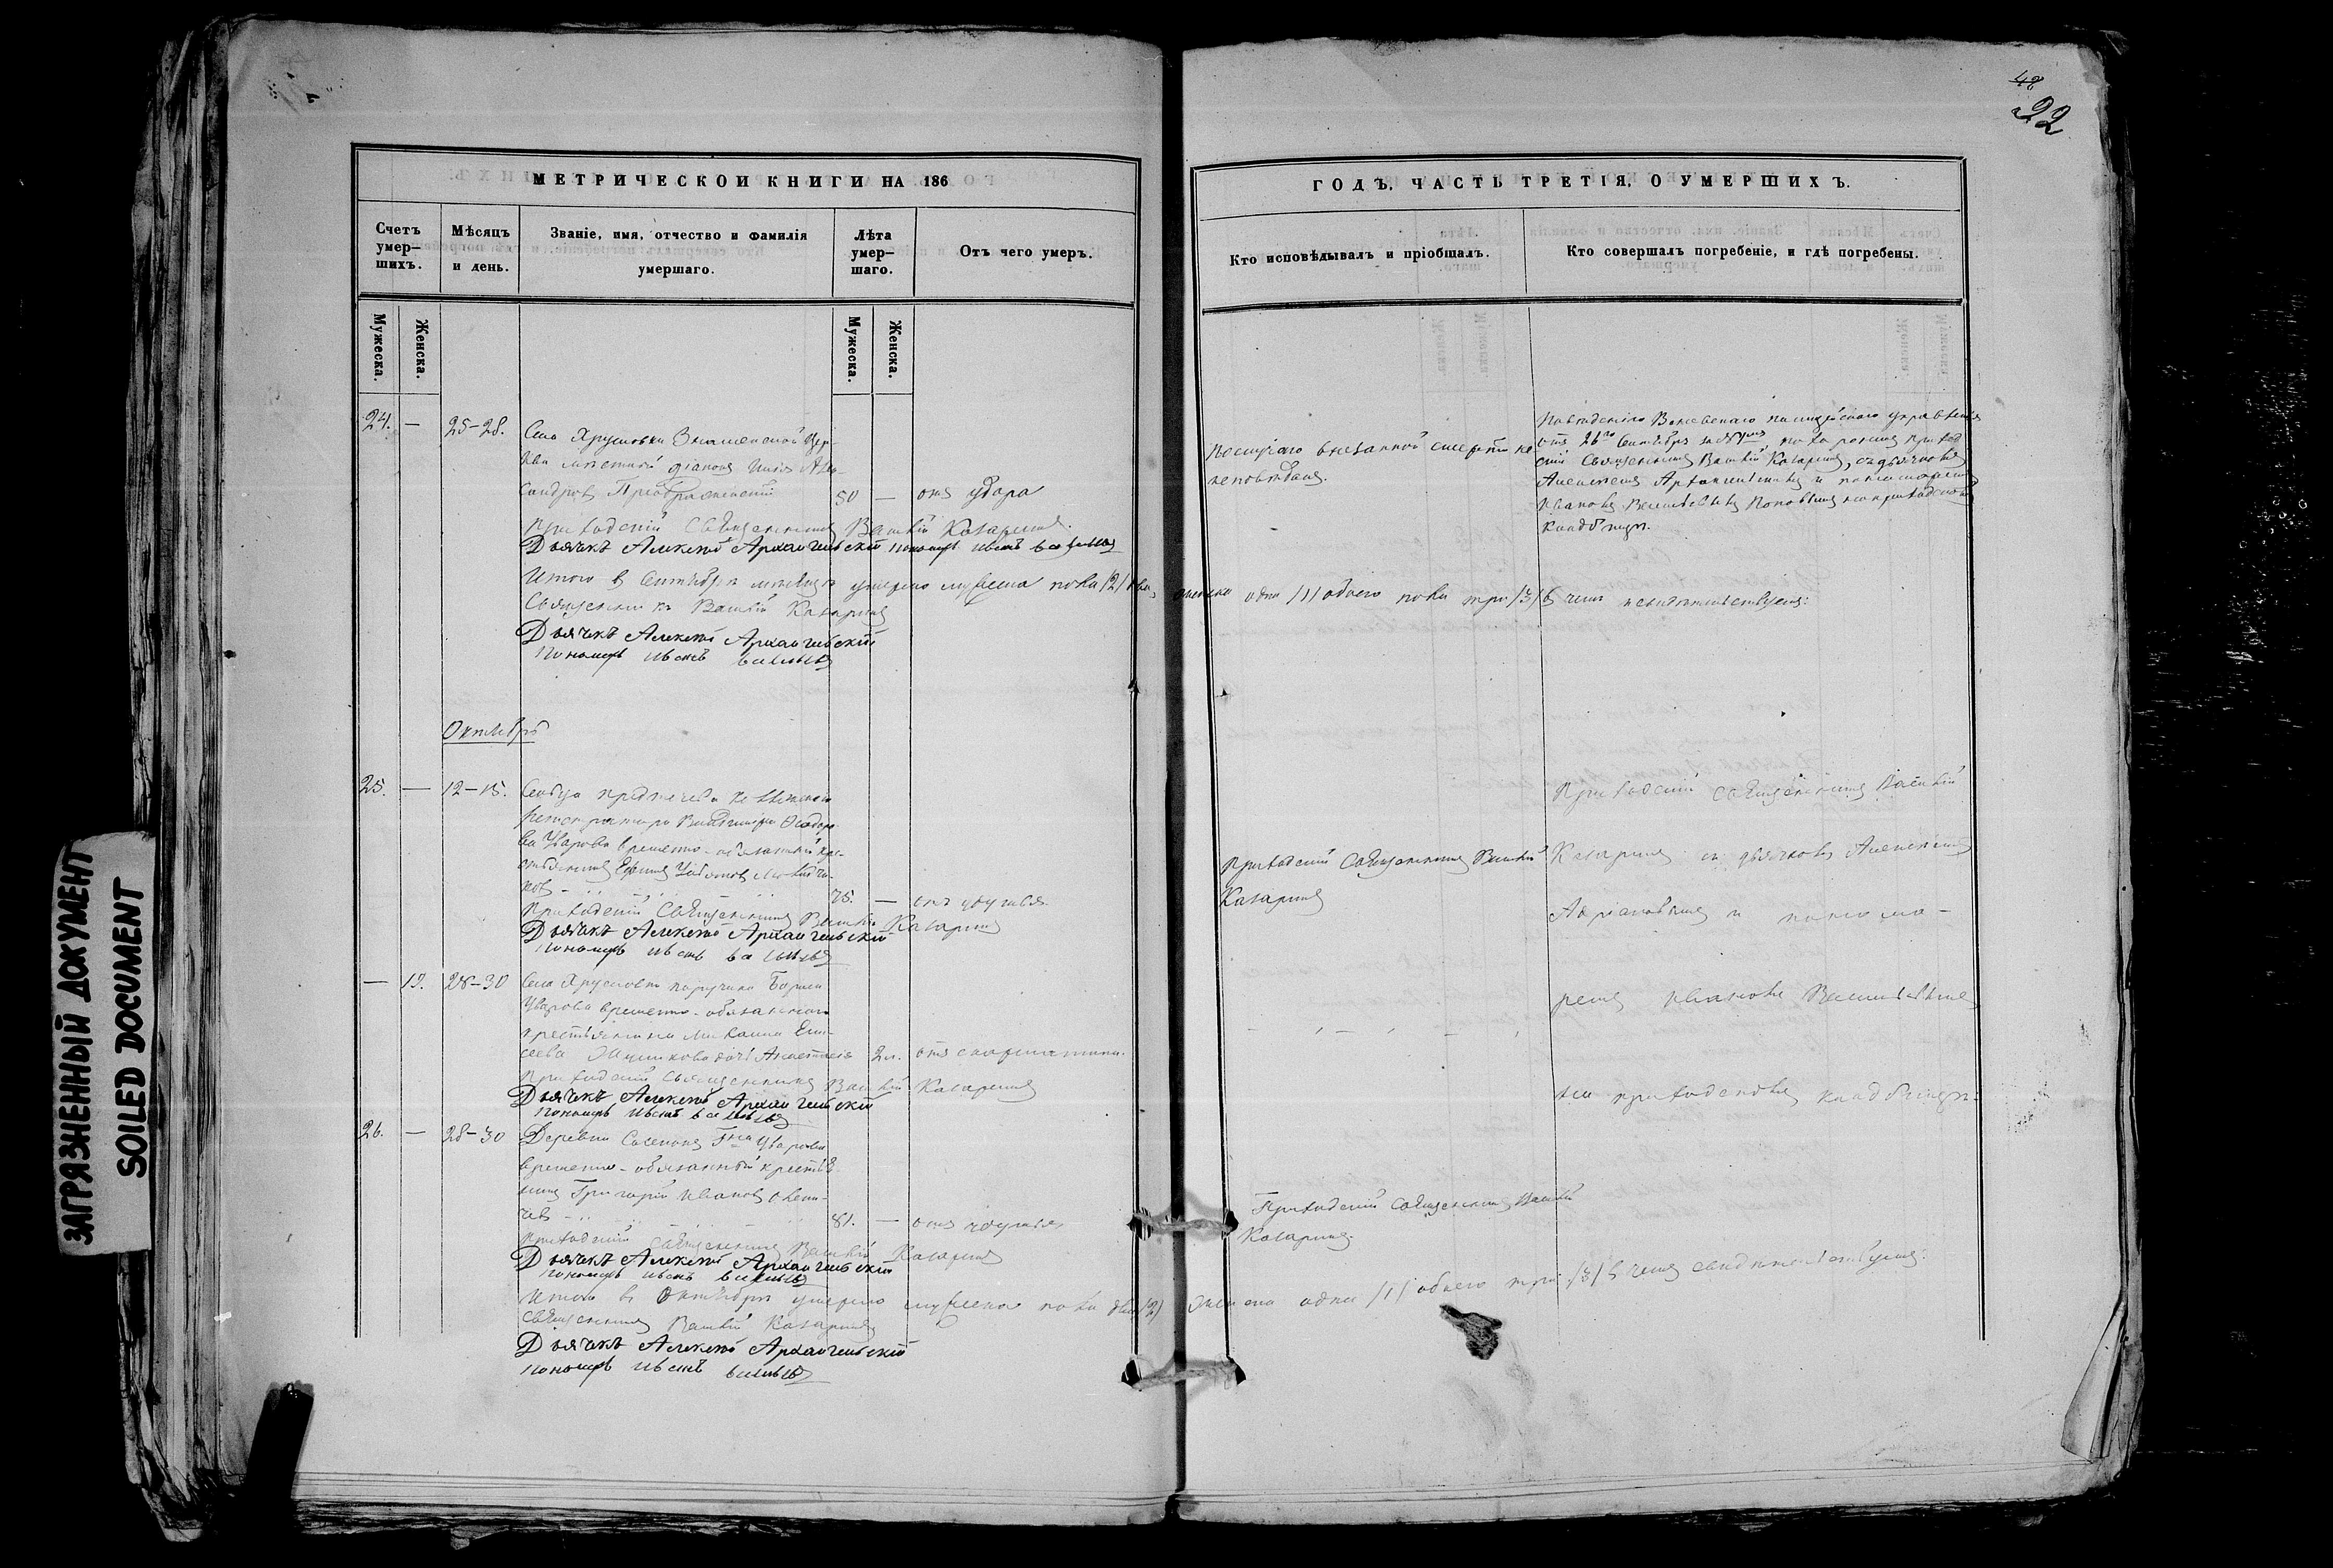 48
22
МЕТРИЧЕСКОЙ КНИГИ НА 186
ГОДЪ, ЧАСТЬ ТРЕТІЯ, О УМЕРШИХЪ.
Счетъ умер-
шихъ.
Мѣсяцъ
и день.
Званіе, имя, отчество и фамилія
умершаго.
Лѣта
умер-
шаго.
Отъ чего умеръ.
Кто исповѣдывалъ и пріобщалъ.
Кто совершалъ погребеніе, и гдѣ погребены.
Мужеска.
Женска.
Мужеска.
Женска.
24. — 25-28.
Села Хрущовки Знаменской Цер-
кви діаконъ Алек-
сандровъ Преображенскій 50 — отъ удара
Приходскій Священникъ Василій Казаринъ.
Дьячекъ Алексѣй Архангельскій пономарь Иванъ Васильевъ
По случаю внезапной смерти не
исповѣданъ.
полицейскаго управленія
отъ 26го Сентября за № похоронилъ приход
скій Священникъ Василій Казаринъ, съ дьячкомъ
Алексѣемъ Архангельскимъ и пономаремъ
Иваномъ Васильевымъ на приходскомъ
кладбищѣ.
Итого въ Сентябрѣ мѣсяцѣ умерло мужеска пола /2/ два, женска одна /1/ обоего пола три /3/ въ чемъ и свидѣтельствуемъ:
Священникъ Василій Казаринъ
Дьячекъ Алексѣй Архангельскій
пономарь Иванъ Васильевъ
Октябрь
25. — 12-15.
Сельца
регистратора Владимира Ѳеодоро-
ва Уварова временно-обязанный кре-
стьянинъ Ефимъ
75. —
Приходскій Священникъ Василій Казаринъ
Дьячекъ Алексѣй Архангельскій
пономарь Иванъ Васильевъ
Приходскій Священникъ Василій
Казаринъ
Приходскій Священникъ Василій
Казаринъ съ дьячкомъ Алексѣемъ
и понома-
ремъ Иваномъ Васильевымъ
на приходскомъ кладбищѣ.
— 28-30
Села Хрущовки поручика
Уварова временно-обязаннаго
крестьянина Ели-
сеева дочь Анастасія 2 л. отъ скарлатины.
Приходскій Священникъ Василій Казаринъ
Дьячекъ Алексѣй Архангельскій
пономарь Иванъ Васильевъ
26. — 28-30
Деревни Уварова
временно-обязанный крестья
нинъ Григорій Ивановъ
81. —
Приходскій Священникъ Василій Казаринъ
Дьячекъ Алексѣй Архангельскій
пономарь Иванъ Васильевъ
Приходскій Священникъ Василій
Казаринъ.
Итого въ Октябрѣ умерло мужеска пола два /2/ женска одна /1/ обоего три /3/ въ чемъ свидѣтельствуемъ:
Священникъ Василій Казаринъ
Дьячекъ Алексѣй Архангельскій
пономарь Иванъ Васильевъ
ЗАГРЯЗНЕННЫЙ ДОКУМЕНТ
SOILED DOCUMENT